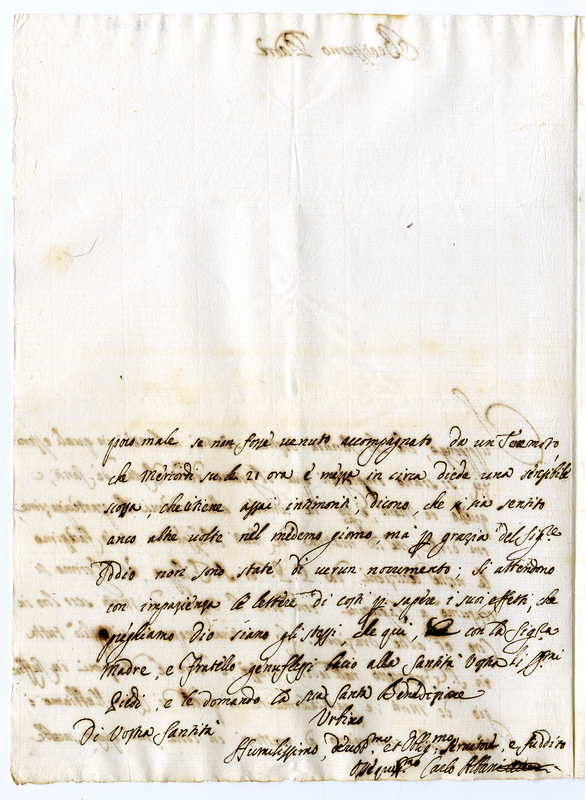 poco male se non fosse venuto accompagnato da un Teremoto
che Mercordì su le 21 ora e mezza in circa diede una sensibile
scossa, che ci tiene assai intimoriti; dicono, che si sia sentito
anco altre volte nel medemo giorno, ma p grazia del Sig.re
Iddio non sono state di verun nocumento; si attendono
con impazienza le lettere di costì p sapere i suoi effetti, che
preghiamo Dio siano gli stessi, che quì, con la Sig.ra
Madre, e Fratello genuflessi bacio alla Santità Vostra li SS.mi
Piedi, e le domando la sua Santa Benedizione
Urbino
Di Vostra Santità
Humilissimo, devot.mo et Oblig.mo Servitore, e Suddito
Carlo Albani